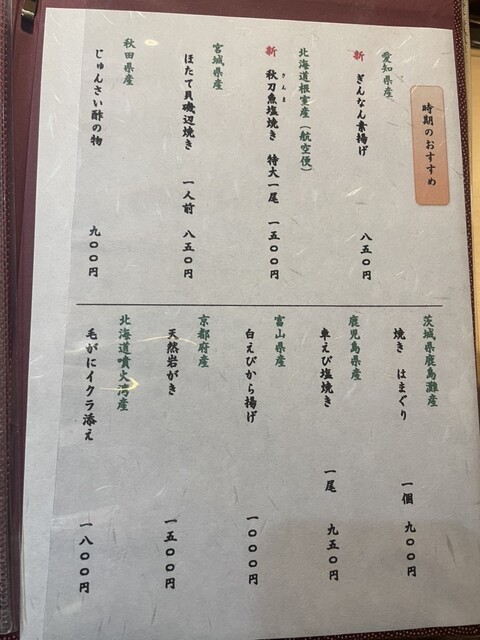 時期のおすすめ
愛知県産
新 ぎんなん素揚げ 八五〇円
北海道根室産（航空便）
新 秋刀魚塩焼き 特大一尾 一五〇〇円
さんま
宮城県産
ほたて貝磯辺焼き 一人前 八五〇円
秋田県産
じゅんさい酢の物 九〇〇円
茨城県鹿島灘産
焼き はまぐり 一個 九〇〇円
鹿児島県産
車えび塩焼き 一尾 九五〇円
富山県産
白えびから揚げ 一〇〇〇円
京都府産
天然岩がき 一五〇〇円
北海道噴火湾産
毛がにイクラ添え 一八〇〇円